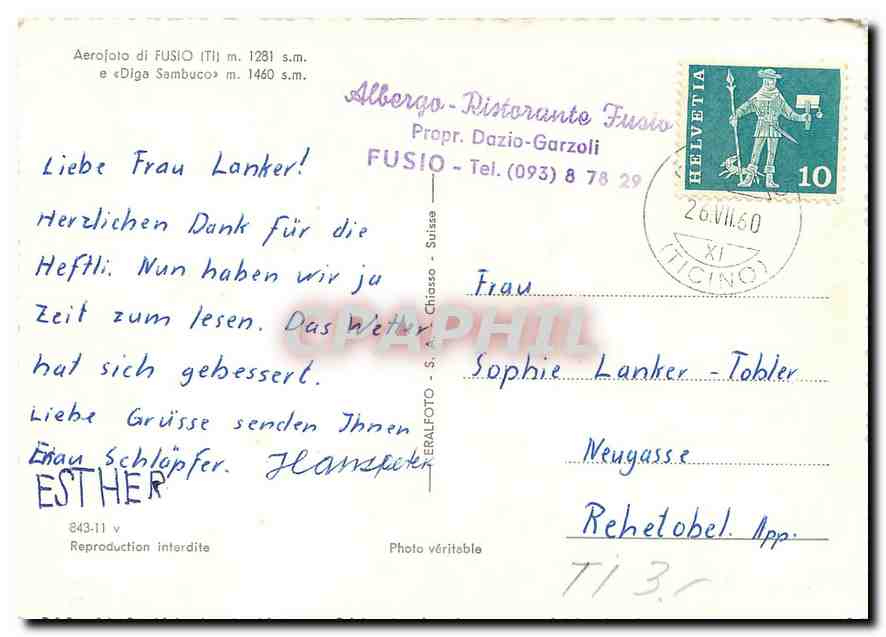 Aerofoto di FUSIO (TI) m. 1281 s.m.
e «Diga Sambuco» m. 1460 s.m.
Albergo - Ristorante Fusio
Propr. Dazio-Garzoli
FUSIO - Tel. (093) 8 78 29
HELVETIA
10
26.VII.60
XI
(TICINO)
Liebe Frau Lanker!
Herzlichen Dank für die
Heftli. Nun haben wir ja
Zeit zum lesen. Das Wetter
hat sich gebessert.
Liebe Grüsse senden Ihnen
Frau Schläpfer. Hanspeter
ESTHER
843-11 v
Reproduction interdite
ERALFOTO - S. A. Chiasso - Suisse
Photo véritable
Frau
Sophie Lanker - Tobler
Neugasse
Rehetobel. App.
TI 3.-
CPAPHIL